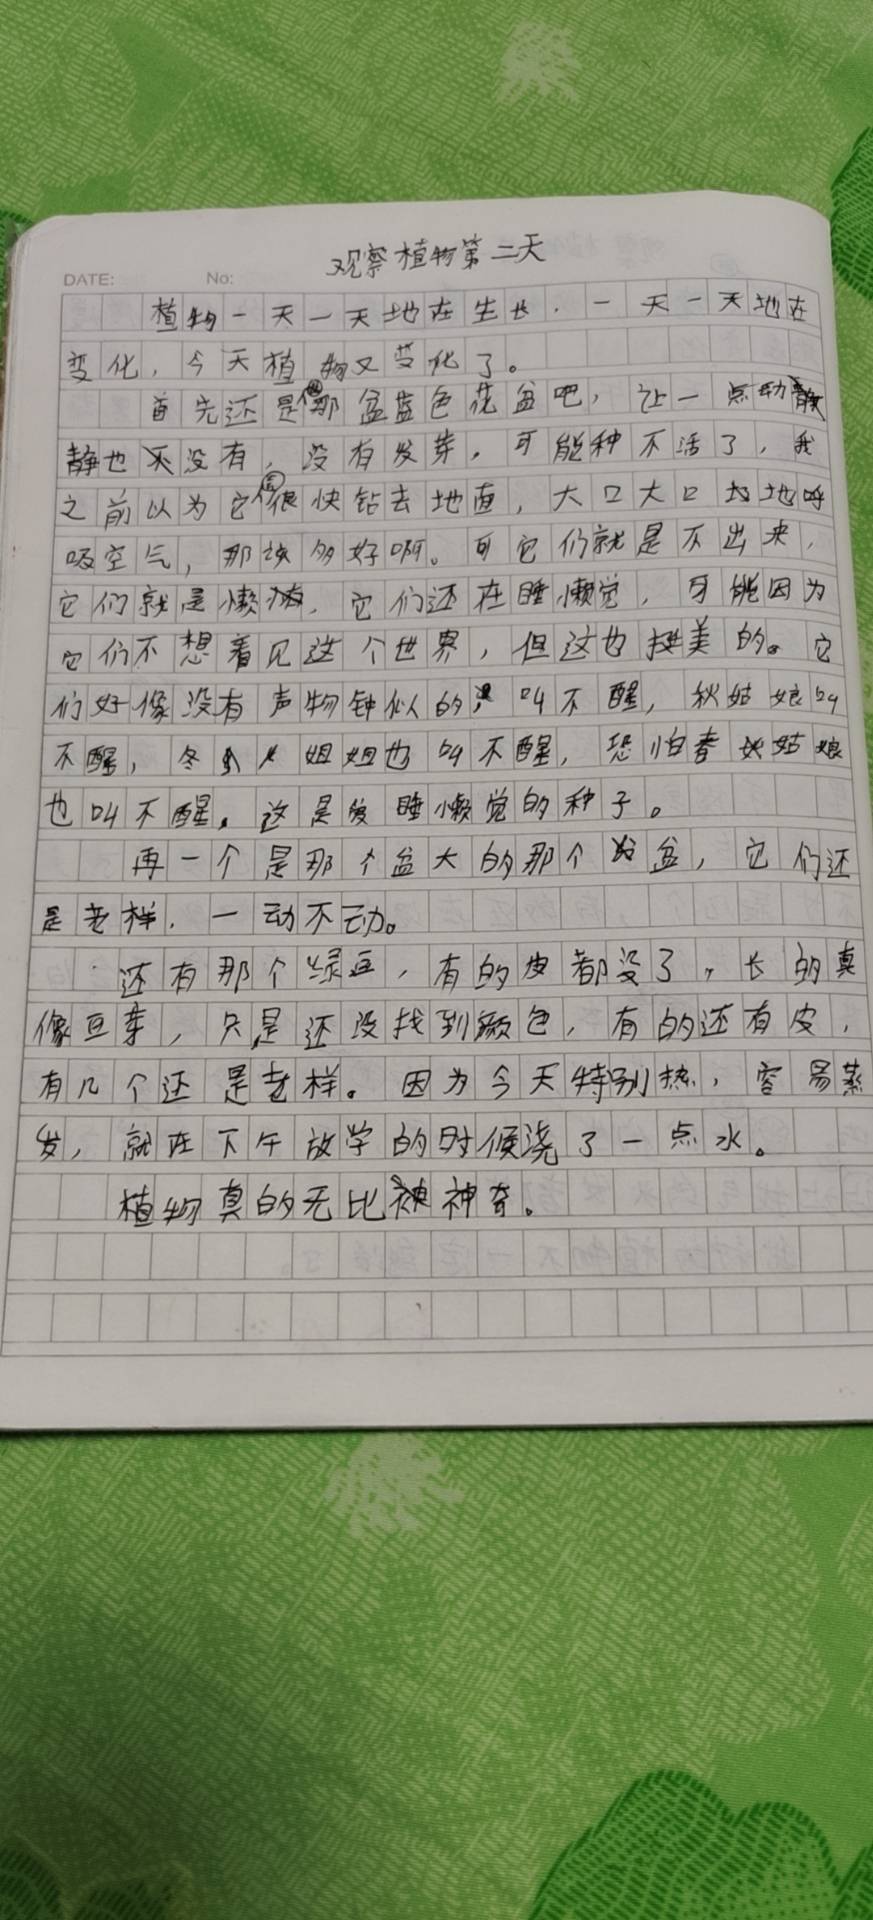 DATE: No: 观察植物第二天
植物一天一天地在生长.一天一天地在
变化,今天植物又变化了。
首先还是那盆蓝色花盆吧,让一点动
静也没有,没有发芽,可能种不活了,我
之前以为它很快钻去地面,大口大口地呼
吸空气,那该多好啊。可它们就是不出来,
它们就是懒,它们还在睡懒觉,可能因为
它们不想看见这个世界,但这也挺美的。它
们好像没有声物钟似的,叫不醒,秋姑娘叫
不醒,冬姐姐也叫不醒,恐怕春姑娘
也叫不醒,这是爱睡懒觉的种子。
再一个是那个盆大的那个盆,它们还
是老样.一动不动。
还有那个绿豆,有的皮都没了,长的真
像豆芽,只是还没找到颜色,有的还有皮,
有几个还是老样。因为今天特别热,容易蒸
发,就在下午放学的时候浇了一点水。
植物真的无比神奇。